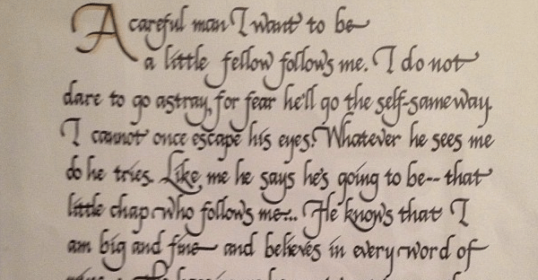 A careful man I want to be
a little fellow follows me. I do not
dare to go astray, for fear he'll go the self-same way.
I cannot once escape his eyes. Whatever he sees me
do he tries. Like me he says he's going to be-- that
little chap who follows me... He knows that I
am big and fine and believes in every word of